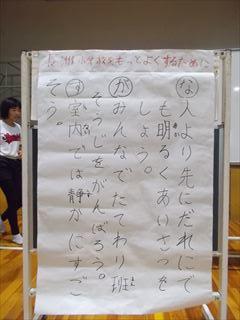 長洲小学校をもっとよくするために
な人より先にだれにで
も明るくあいさつを
しょう。
がみんなでたてわり班
そうじをがんばろう。
す室内では静かにすご
そう。